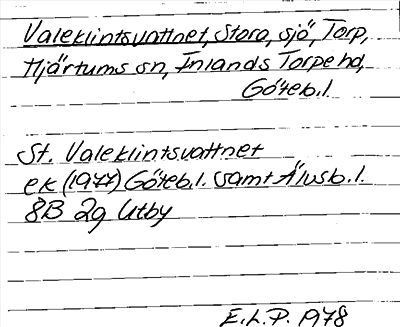 Valeklintsvattnet, Stora, sjö, Torp,
Hjärtums sn, Inlands Torpe hd,
Göteb. l.
St. Valeklintsvattnet
ek (1977) Göteb. l. samt Älvsb. l.
8B 2g Utby
E.L.P. 1978